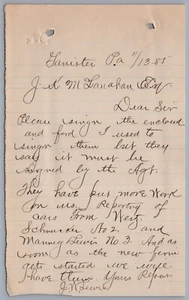 Lanister Pa 11/13-85
J. A. McLanahan Esq
Dear Sir
Please sign the enclosed
and ford I used to
sign them but they
say it must be
signed by the Agt.
They have put more Word
on us, Reportng of
cars from West
No 2 and
Manney Lewis No 3. And as
soon as the new firm
gets started we will
have Yours Respt
J. W. Lewis